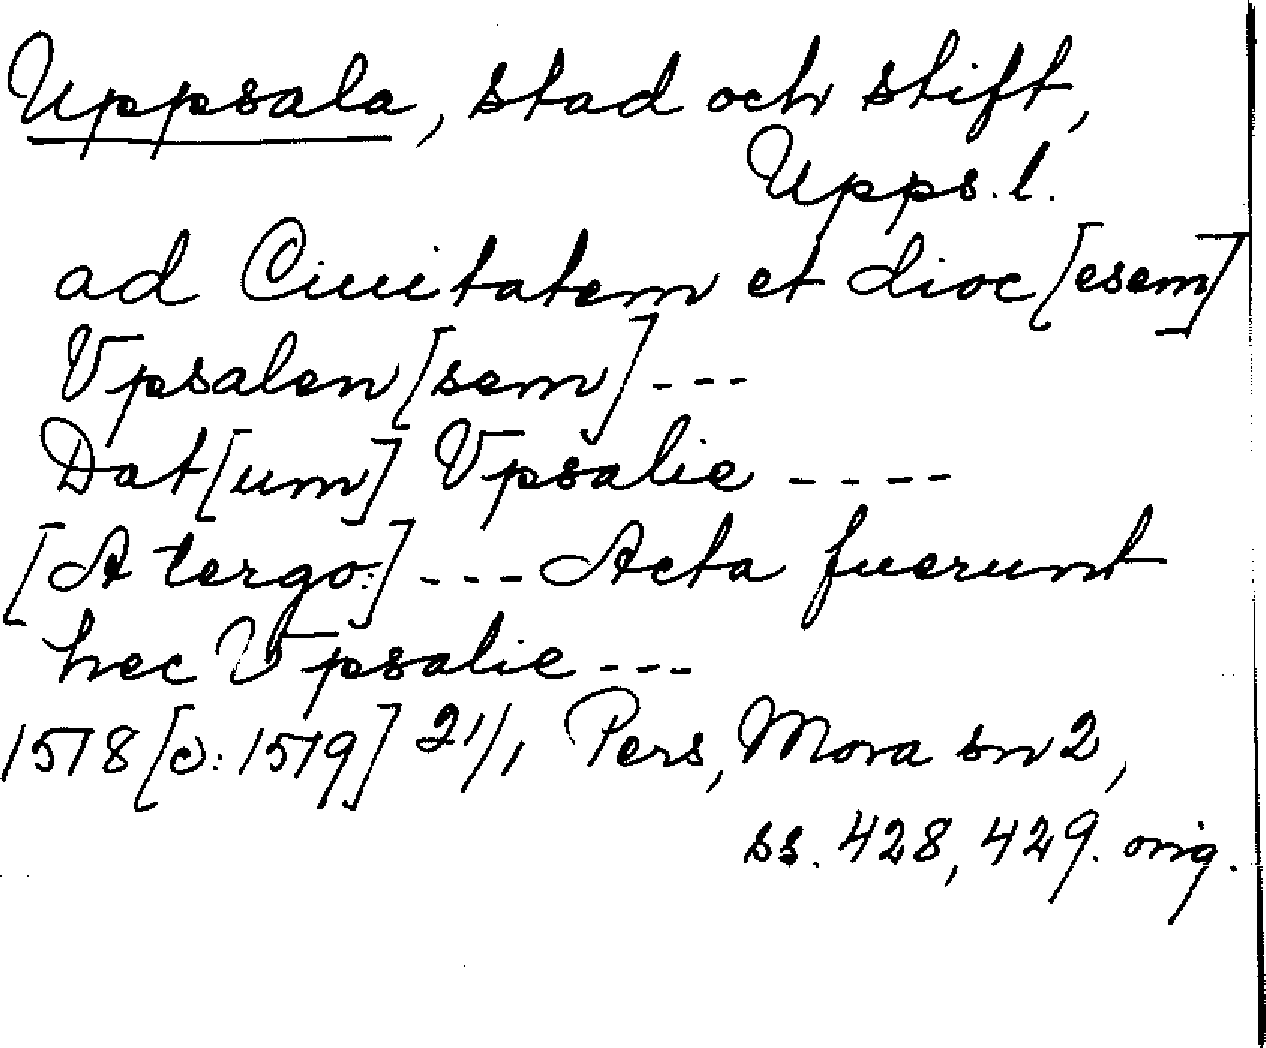 Uppsala, stad och stift,
Upps. l.
ad Ciuitatem et dioc[esem]
Vpsalen[sem] ---
Dat[um] Vpsalie ----
[A tergo:] --- Acta fuerunt
hec Vpsalie ---
1518 [ɔ: 1519] 21/1 Pers, Mora sn 2,
ss. 428, 429. orig.